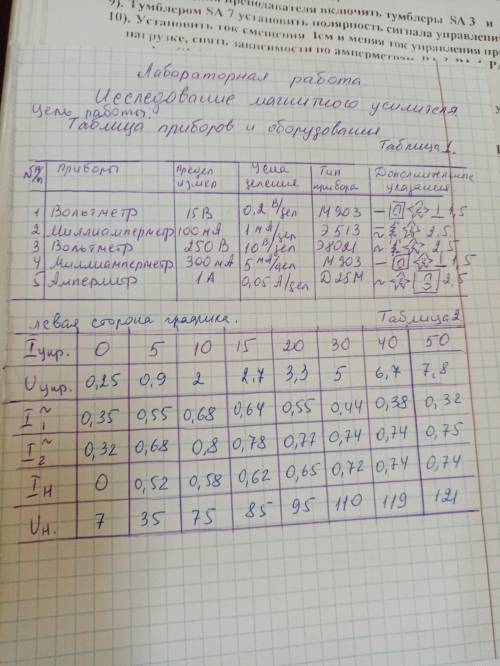 преподавателя включить тумблеры SA 3 и
9). Тумблером SA 7 установить полярность сигнала управлени
10). Установить ток смещения 1см и меняя ток управления пр
нагрузке, снять зависимости по амперметрам
Лабораторная работа.
Исследование магнитного усилителя
Цель работы.
Таблица приборов и оборудования
Таблица 1.
№ п/п Приборы Предел измер Цена деления Тип прибора Дополнительные указания
1 Вольтметр 15 В 0,2 В/дел М903 1,5
2 Миллиамперметр 100 мА 1 мА/дел Э513 2,5
3 Вольтметр 250 В 10 В/дел Э8021 2,5
4 Миллиамперметр 300 мА 5 мА/дел М903 1,5
5 Амперметр 1А 0,05 А/дел Д25М 2,5
левая сторона графика. Таблица 2
Iупр. 0 5 10 15 20 30 40 50
Uупр. 0,25 0,9 2 2,7 3,3 5 6,7 7,8
I₁~ 0,35 0,55 0,68 0,64 0,55 0,44 0,38 0,32
I₂~ 0,32 0,68 0,8 0,78 0,77 0,74 0,74 0,75
Iн 0 0,52 0,58 0,62 0,65 0,72 0,74 0,74
Uн. 7 35 75 85 95 110 119 121